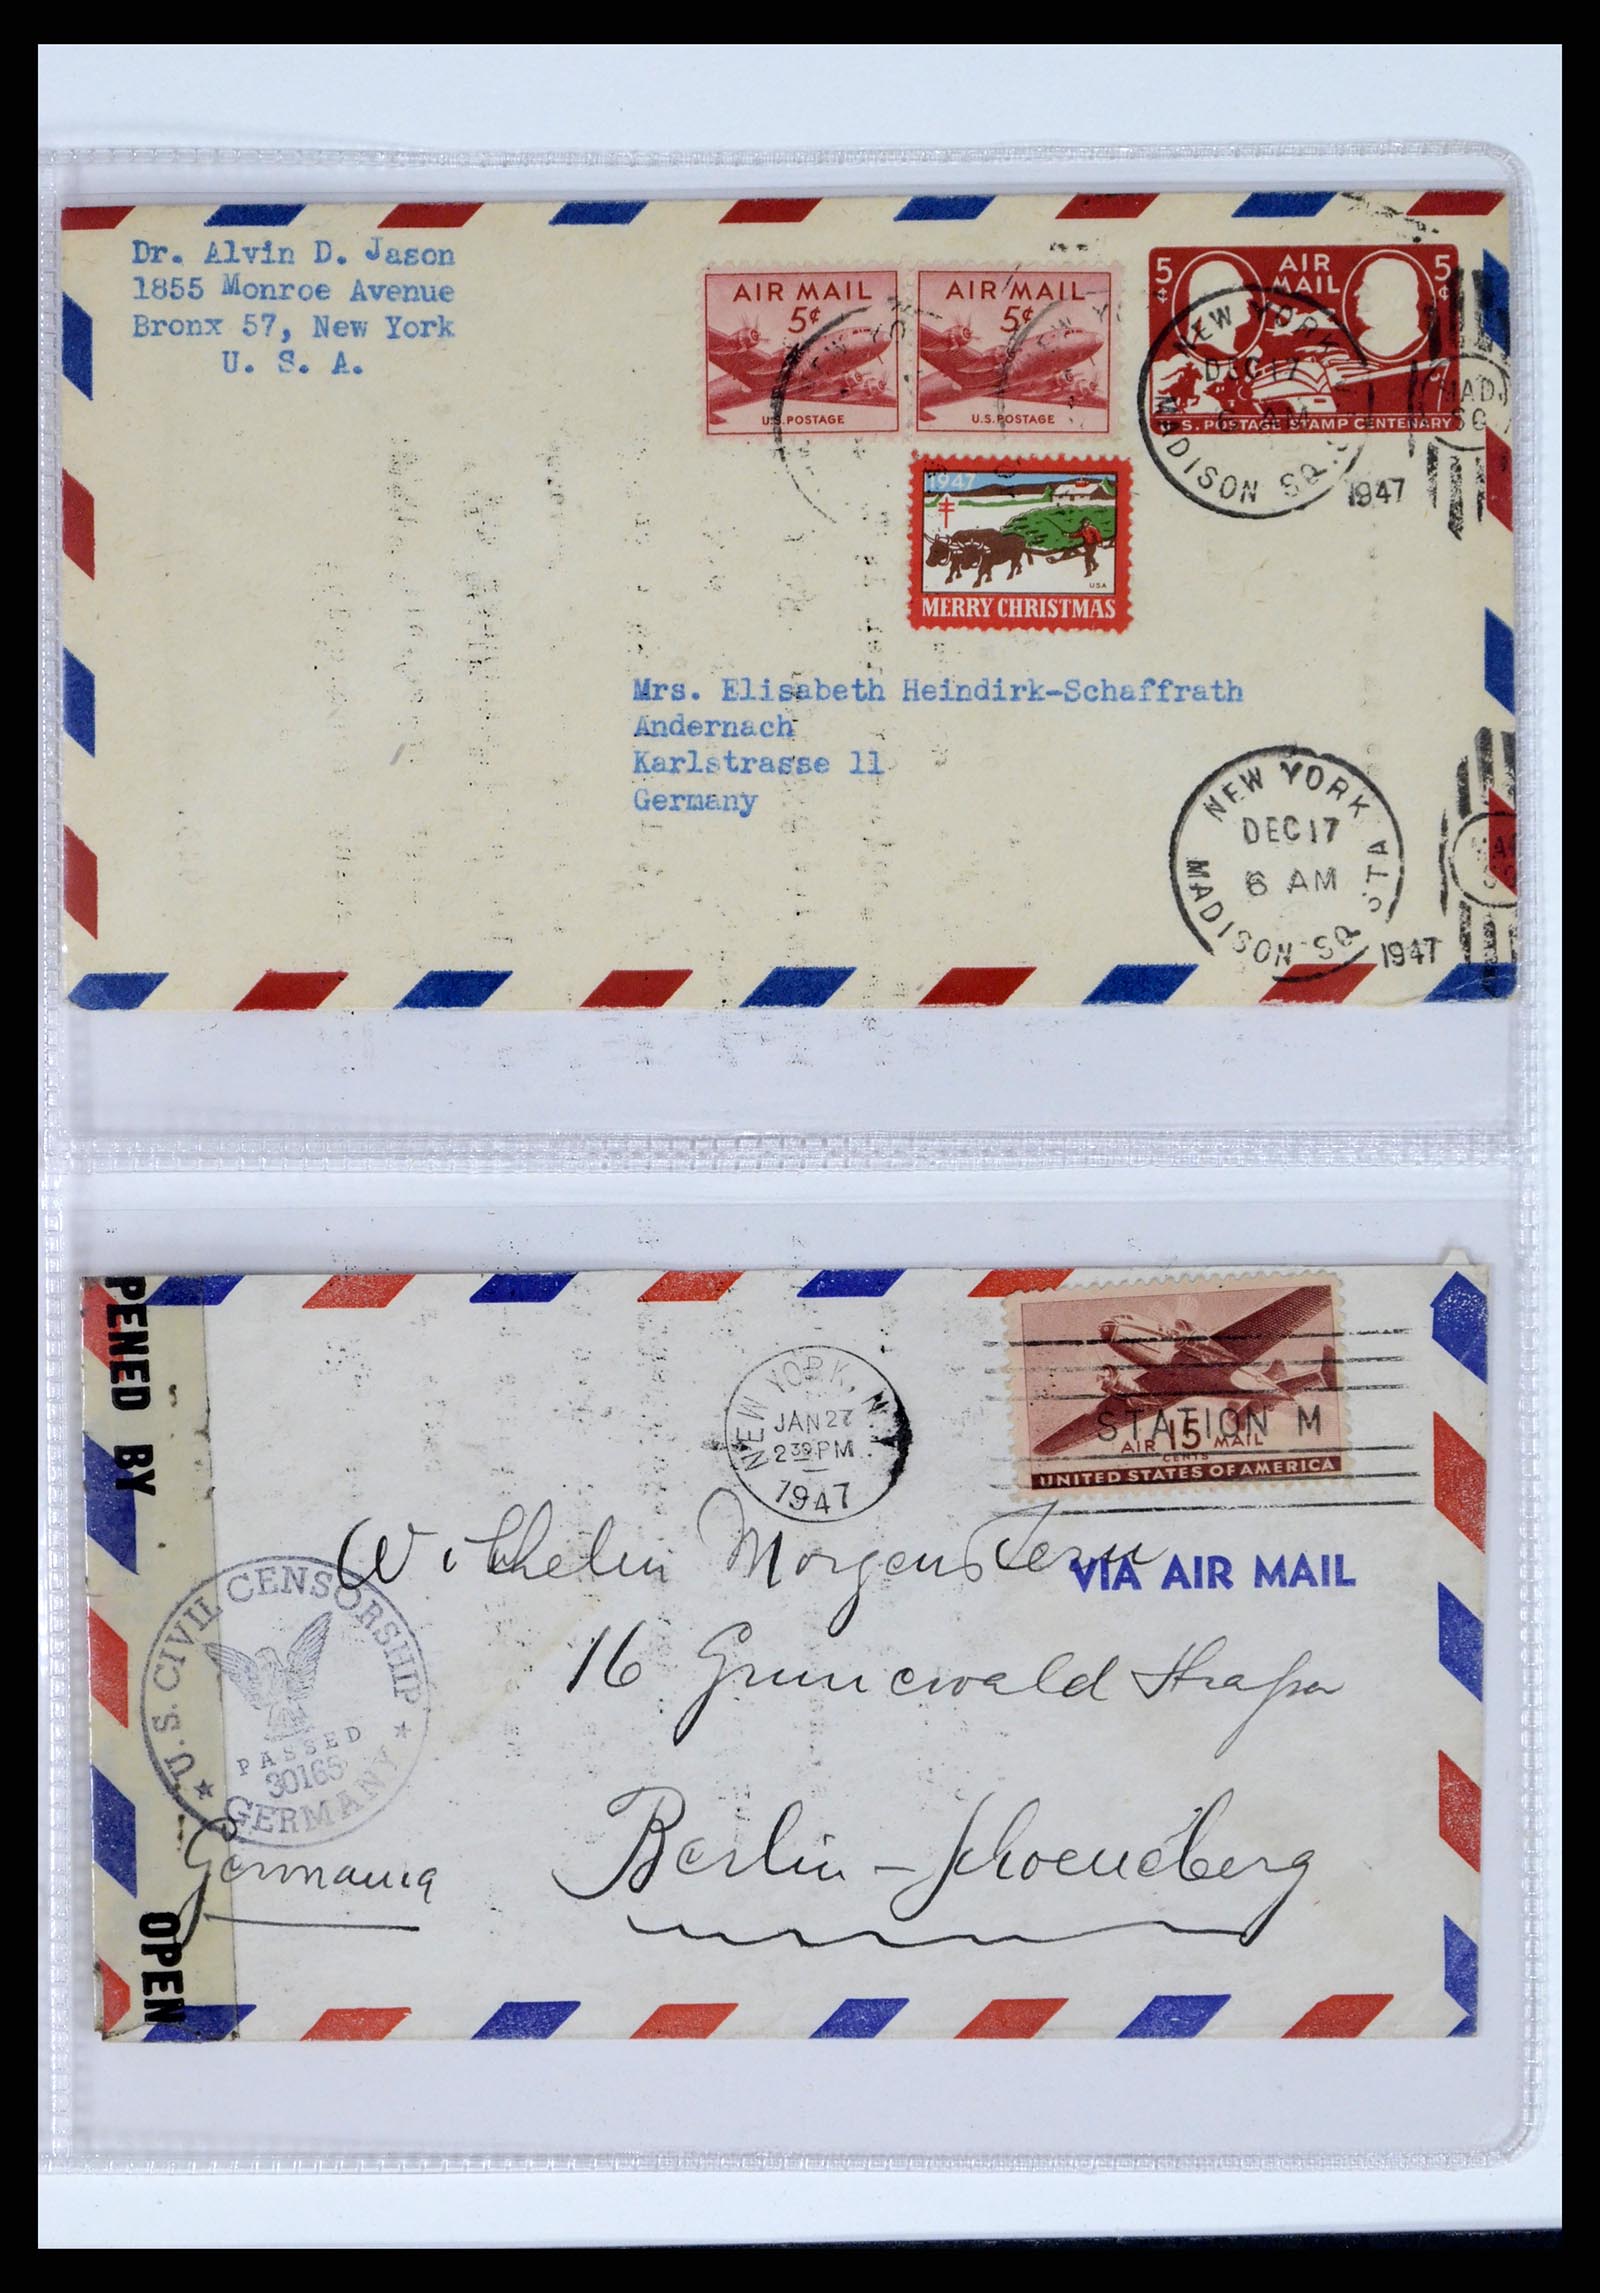 Dr. Alvin D. Jason
1855 Monroe Avenue
Bronx 57, New York
U. S. A.
AIR MAIL
5¢
U.S. POSTAGE
AIR MAIL
5¢
U.S. POSTAGE
5¢ AIR MAIL 5¢
U.S. POSTAGE STAMP CENTENARY
NEW YORK
DEC 17
6 AM
MADISON SQ. STA
1947
MAD
SQ
1947
USA
MERRY CHRISTMAS
Mrs. Elisabeth Heindirk-Schaffrath
Andernach
Karlstrasse 11
Germany
NEW YORK
DEC 17
6 AM
MADISON SQ STA
1947
OPENED BY
NEW YORK, N.Y.
JAN 27
2 30 PM
1947
STATION M
AIR 15 MAIL
CENTS
UNITED STATES OF AMERICA
VIA AIR MAIL
Wilhelm Morgenstern
16 Grunewald Strasse
Berlin - Schoeneberg
U.S. CIVIL CENSORSHIP
PASSED
30165
GERMANY
Germania
OPEN